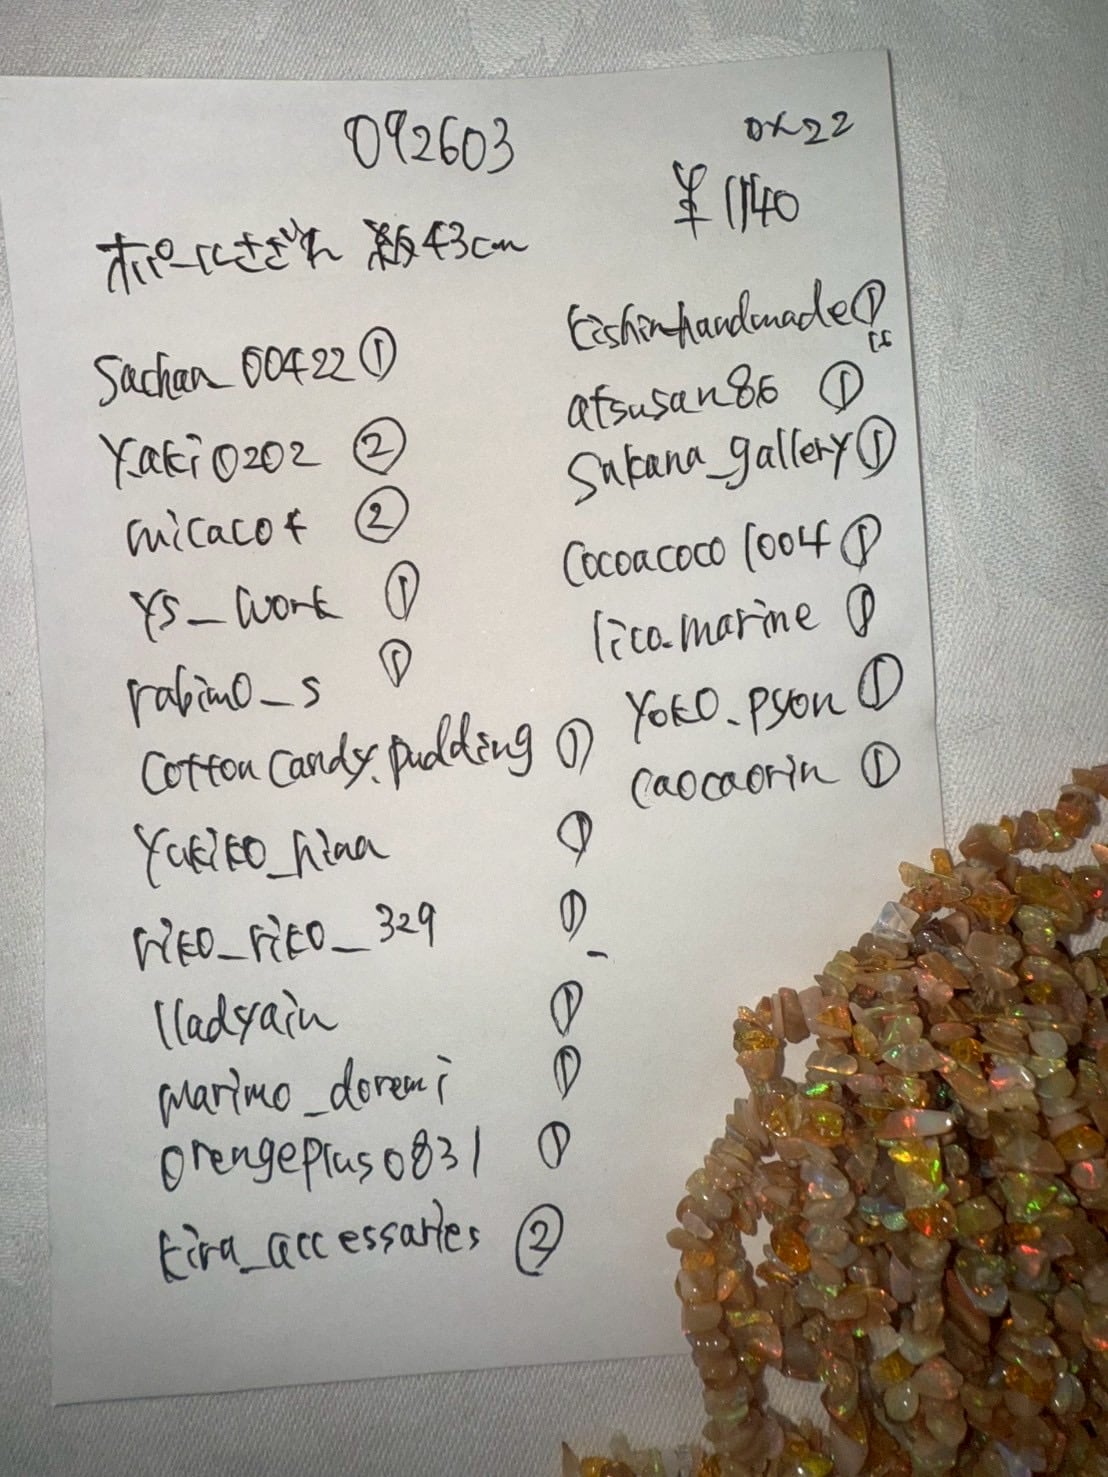 092603
0x22
¥1140
オパールさざれ 約43cm
Sachan_00422 ①
Yaki0202 ②
micaco+ ②
YS_work ①
rabimo_s ①
Cottoncandy.pudding ①
Yukiko_hina ①
riko_riko_329 ①
lladyain ①
marimo_doremi ①
orengeplus0831 ①
kira_accessaries ②
kishinhandmade ①
atsusan86 ①
Sakana_gallery ①
Cocoacoco1004 ①
lico.marine ①
Yoko.pyon ①
Caocaorin ①